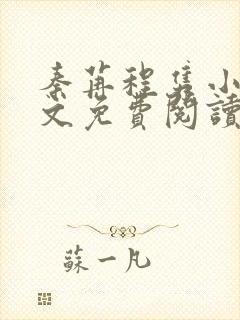 秦苒程隽小
文免費閱讀
蘇一凡